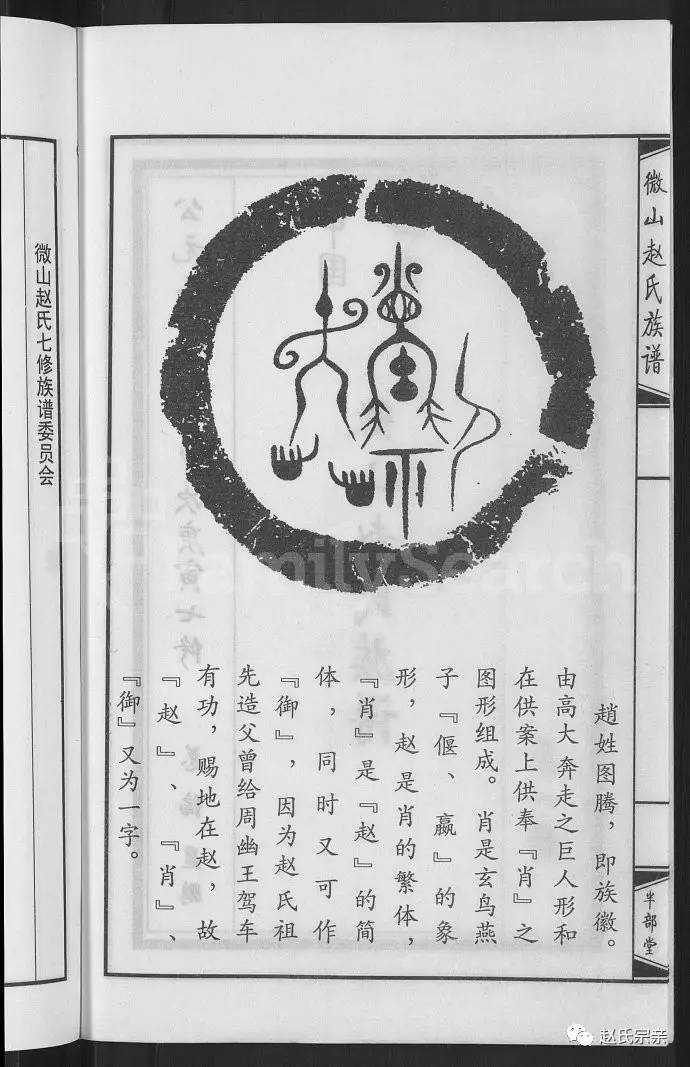 微山赵氏族谱
半部堂
趙姓图腾，即族徽。
由高大奔走之巨人形和
在供案上供奉『肖』之
图形组成。肖是玄鸟燕
子『偃、嬴』的象
形，赵是肖的繁体，
『肖』是『赵』的简
体，同时又可作
『御』，因为赵氏祖
先造父曾给周幽王驾车
有功，赐地在赵，故
『赵』、『肖』、
『御』又为一字。
微山赵氏七修族谱委员会
FamilySearch
赵氏宗亲